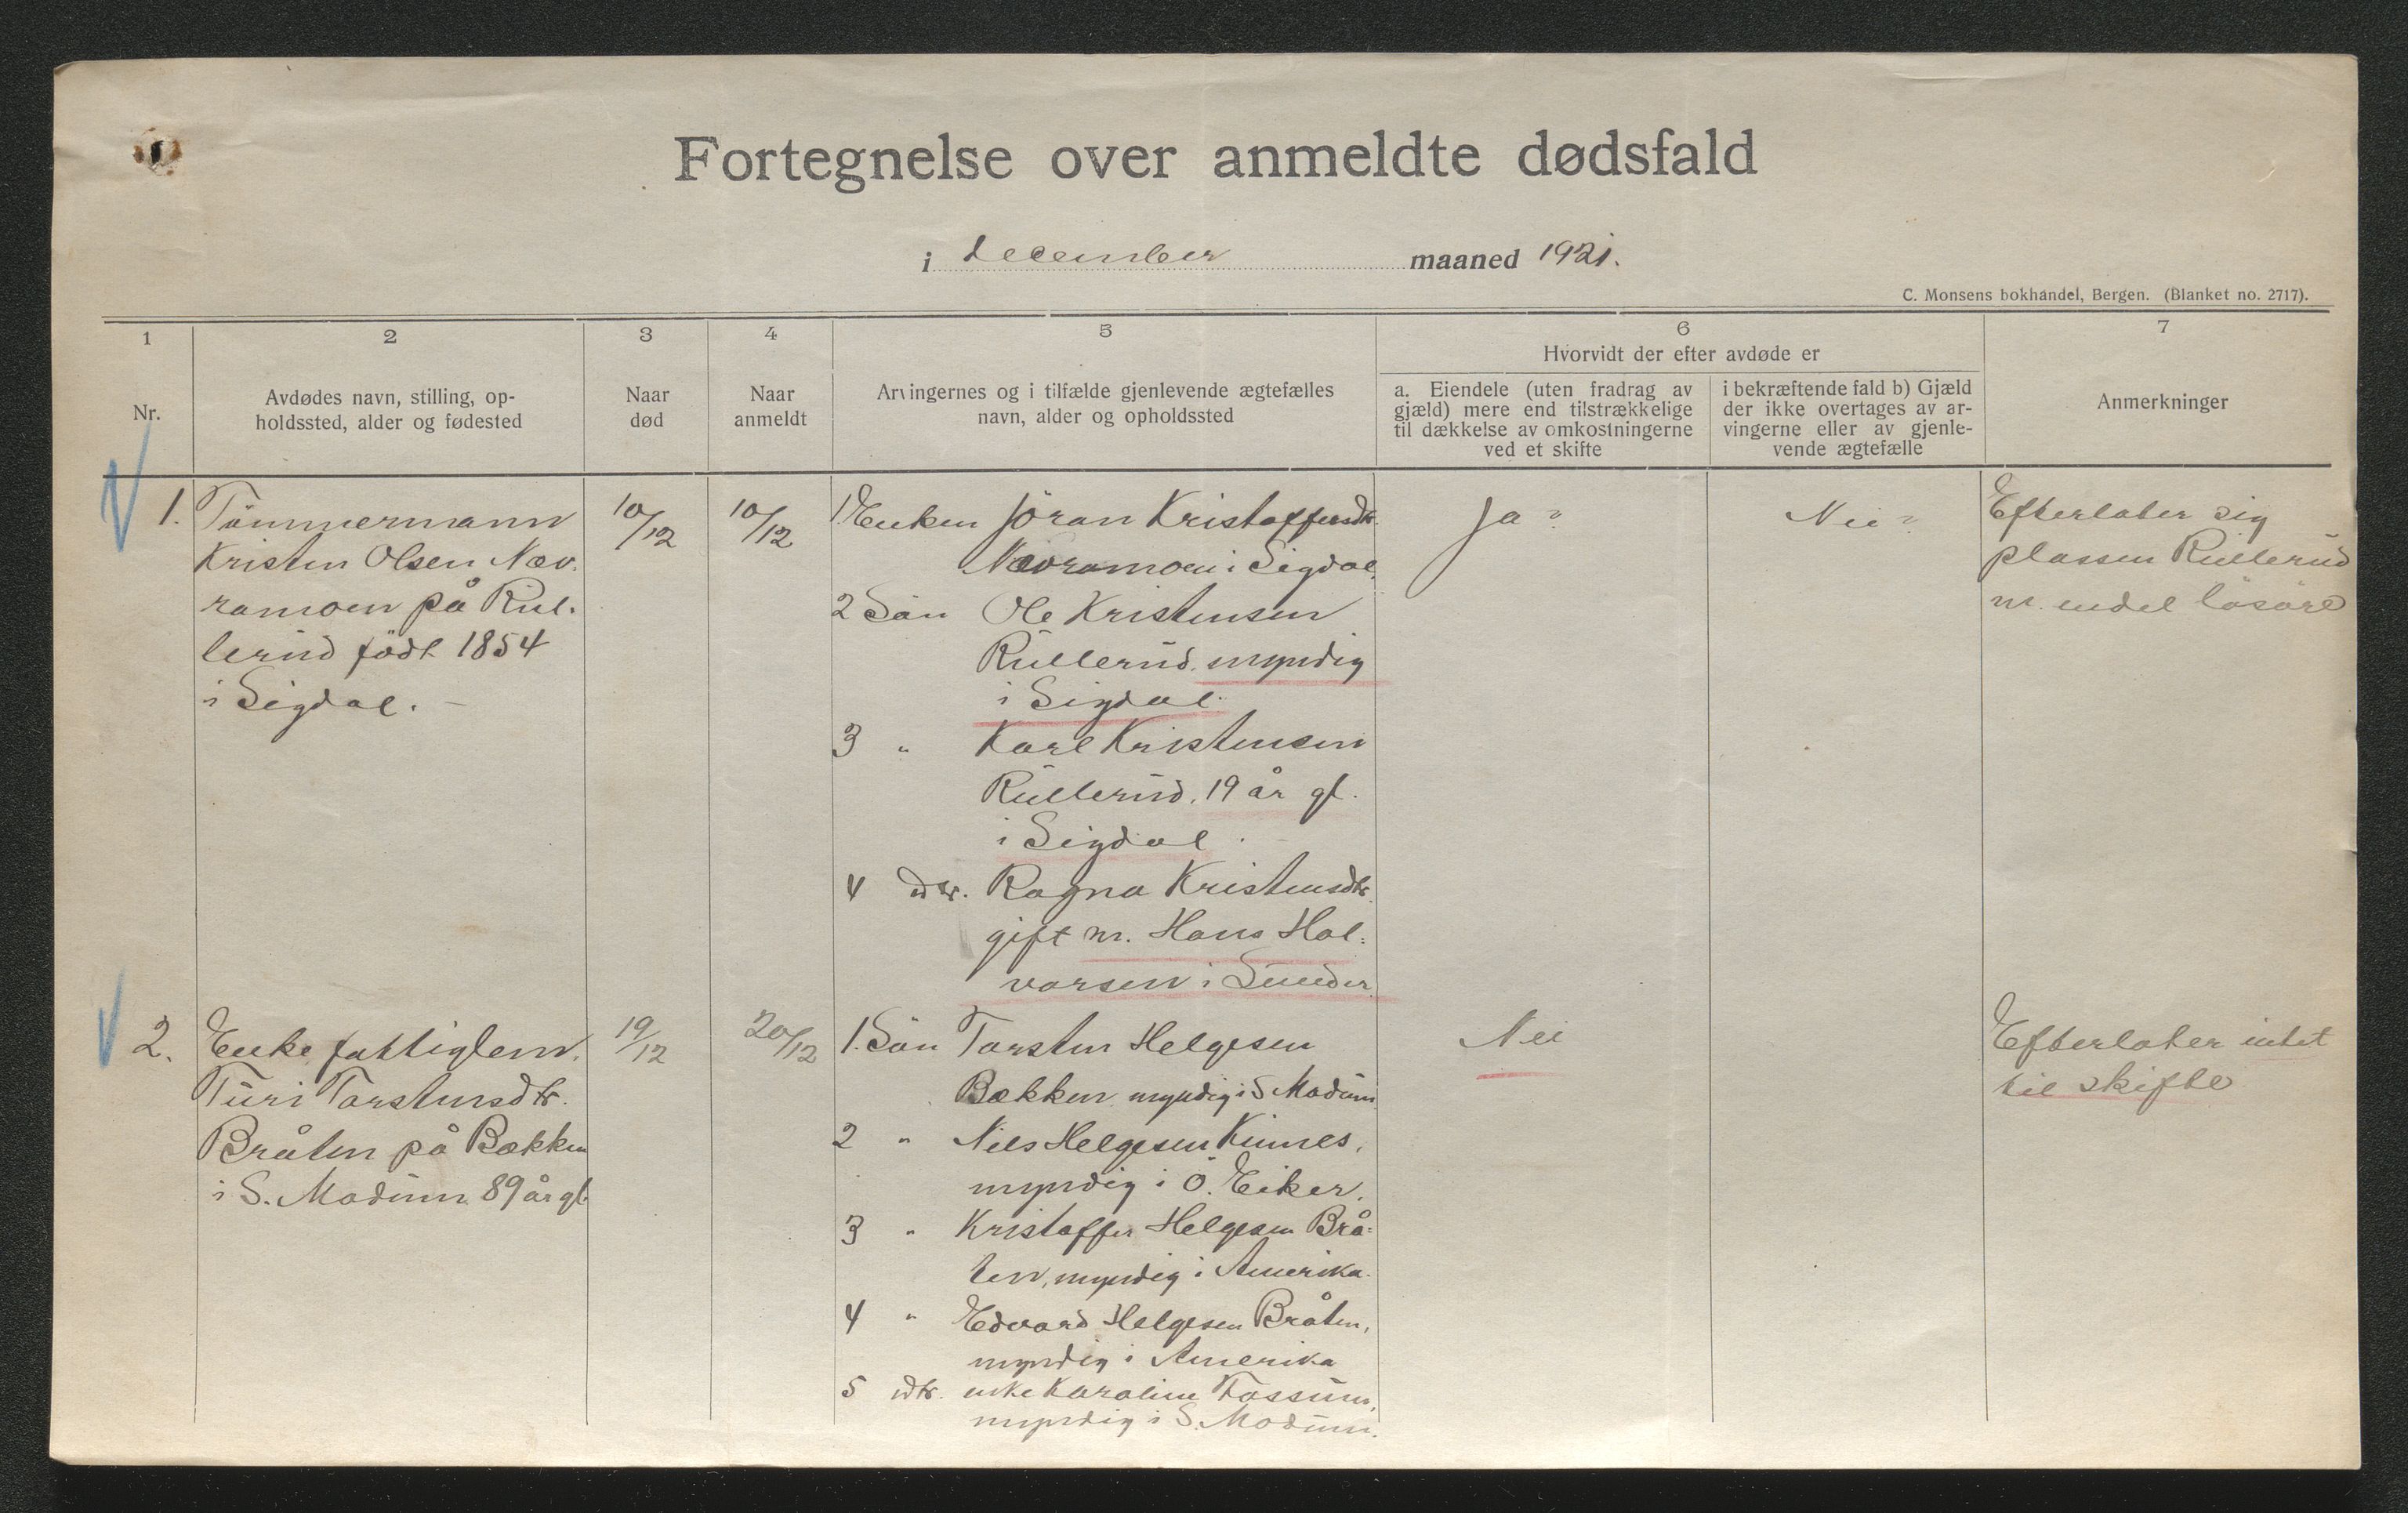 Fortegnelse over anmeldte dødsfald
i december maaned 1921.
C. Monsens bokhandel, Bergen. (Blanket no. 2717).
1 2 3 4 5 6 7
Nr.
Avdødes navn, stilling, op-
holdssted, alder og fødested
Naar
død
Naar
anmeldt
Arvingernes og i tilfælde gjenlevende ægtefælles
navn, alder og opholdssted
Hvorvidt der efter avdøde er
a. Eiendele (uten fradrag av
gjæld) mere end tilstrækkelige
til dækkelse av omkostningerne
ved et skifte
i bekræftende fald b) Gjæld
der ikke overtages av ar-
vingerne eller av gjenle-
vende ægtefælle
Anmerkninger
1. Tömmermann
Kristen Olsen Næv-
ramoen på Rul-
lerud född 1854
i Sigdal. –
10/12
10/12
1. Enken Jöran Kristoffersdtr.
Nævramoen i Sigdal.
2 Sön Ole Kristensen
Rullerud. myndig
i Sigdal.
3 " Karl Kristensen
Rullerud. 19 år gl.
i Sigdal.
4 dtr. Ragna Kristensdtr.
gift m. Hans Hal-
vorsen i Simoa
Ja?
Nei?
Efterlater sig
plassen Rullerud
m. endel lösöre
2. Enke fattiglem.
Turi Torstensdtr.
Bråten på Bækken
i S. Modum 89 år gl.
19/12
20/12
1. Sön Torsten Helgesen
Bækken myndig i S Modum
2 " Nils Helgesen Kinnes,
myndig i Ö. Eiker.
3 " Kristoffer Helgesen Brå-
ten, myndig i Amerika.
4 " Edvard Helgesen Bråten,
myndig i Amerika
5 dtr. enke Karoline Fossum,
myndig i S. Modum.
Nei
Efterlater intet
til skifte